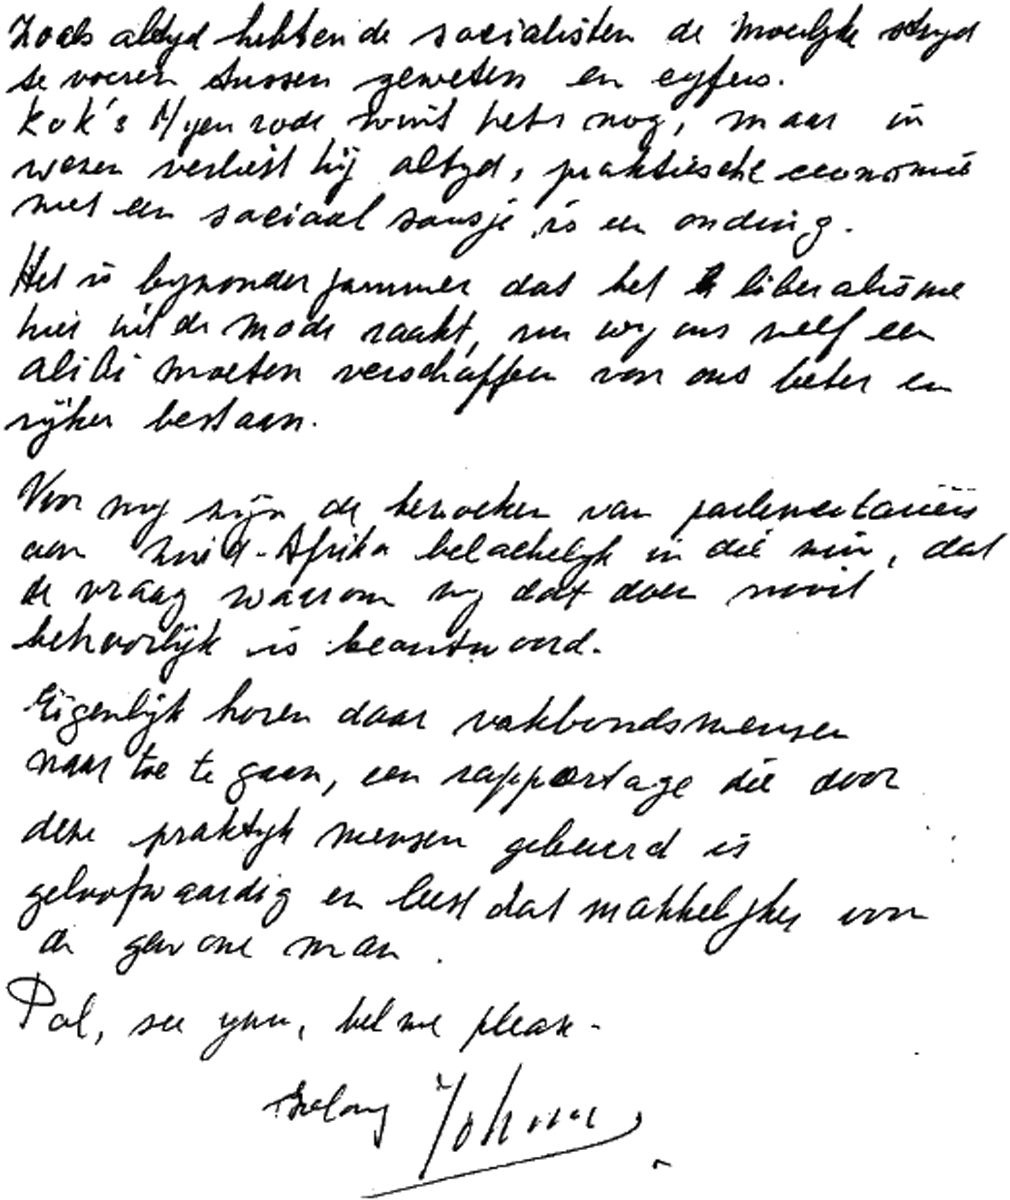 Zoals altyd hebben de socialisten de moeilyke stryd
te voeren tussen geweten en cyfers.
Kok's Nyenrode wint het nog, maar in
wezen verliest hij altyd, praktische economie
met een sociaal sausje is een onding.
Het is byzonder jammer dat het liberalisme
hier uit de mode raakt, nu wy ons zelf een
alibi moeten verschaffen voor ons beter en
rijker bestaan.
Voor my zijn de bezoeken van parlementariërs
aan Zuid-Afrika belachelijk in die zin, dat
de vraag waarom zy dat doen nooit
behoorlijk is beantwoord.
Eigenlijk horen daar vakbondsmensen
naar toe te gaan, een rapportage die door
deze praktyk mensen gebeurd is
geloofwaardig en leest dat makkelijker voor
de gewone man.
Pal, see you, bel me please.